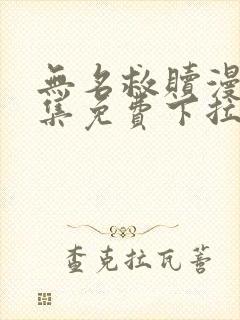 無名救贖漫
集免費下拉
查克拉瓦蒼